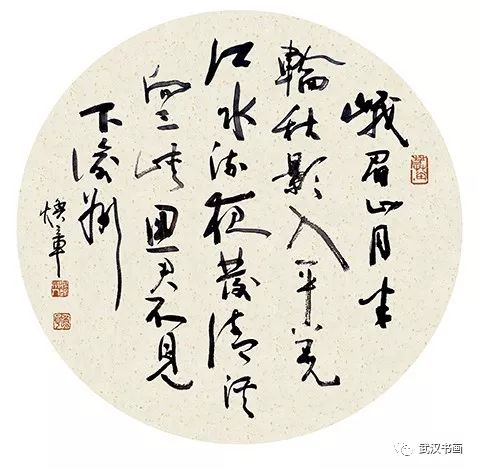 峨眉山月半
輪秋影入平羌
江水流夜發清溪
向三峡思君不見
下渝州
焕章
武汉书画